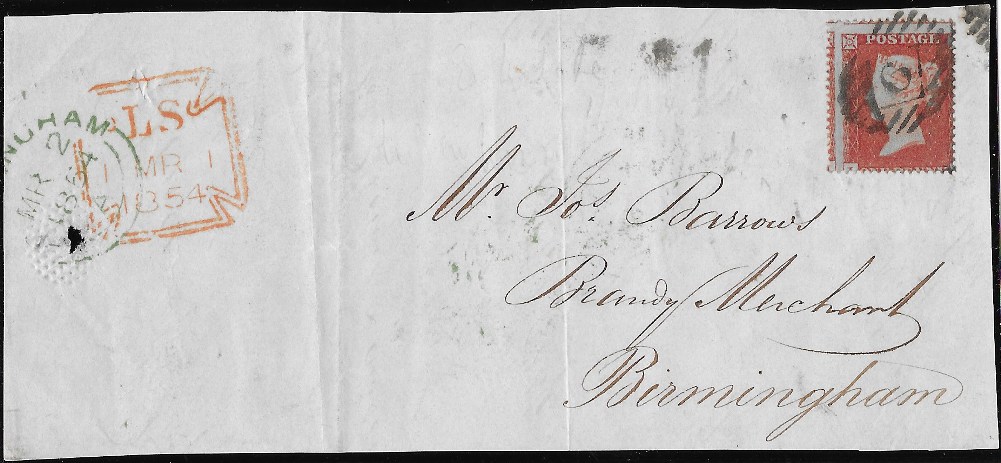 POSTAGE
LS
1 MR 1
1854
NGHAM
MR 2
1854
Mr. Jos. Barrows
Brandy Merchant
Birmingham